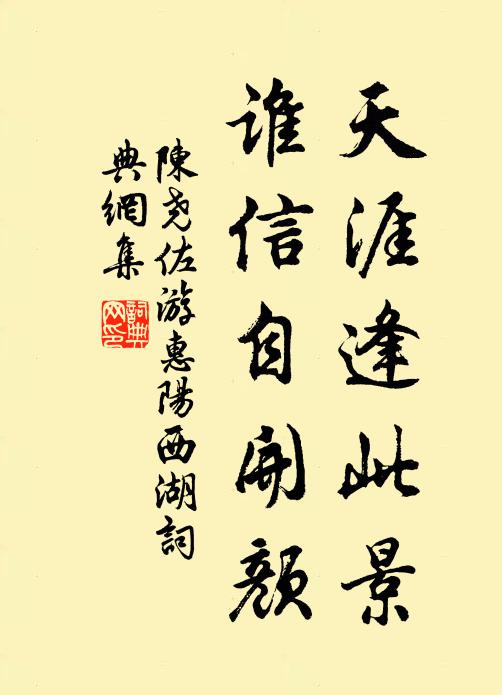 天涯逢此景
谁信自開顔
陳尧佐游惠陽西湖詞
典網集
詞典
网印